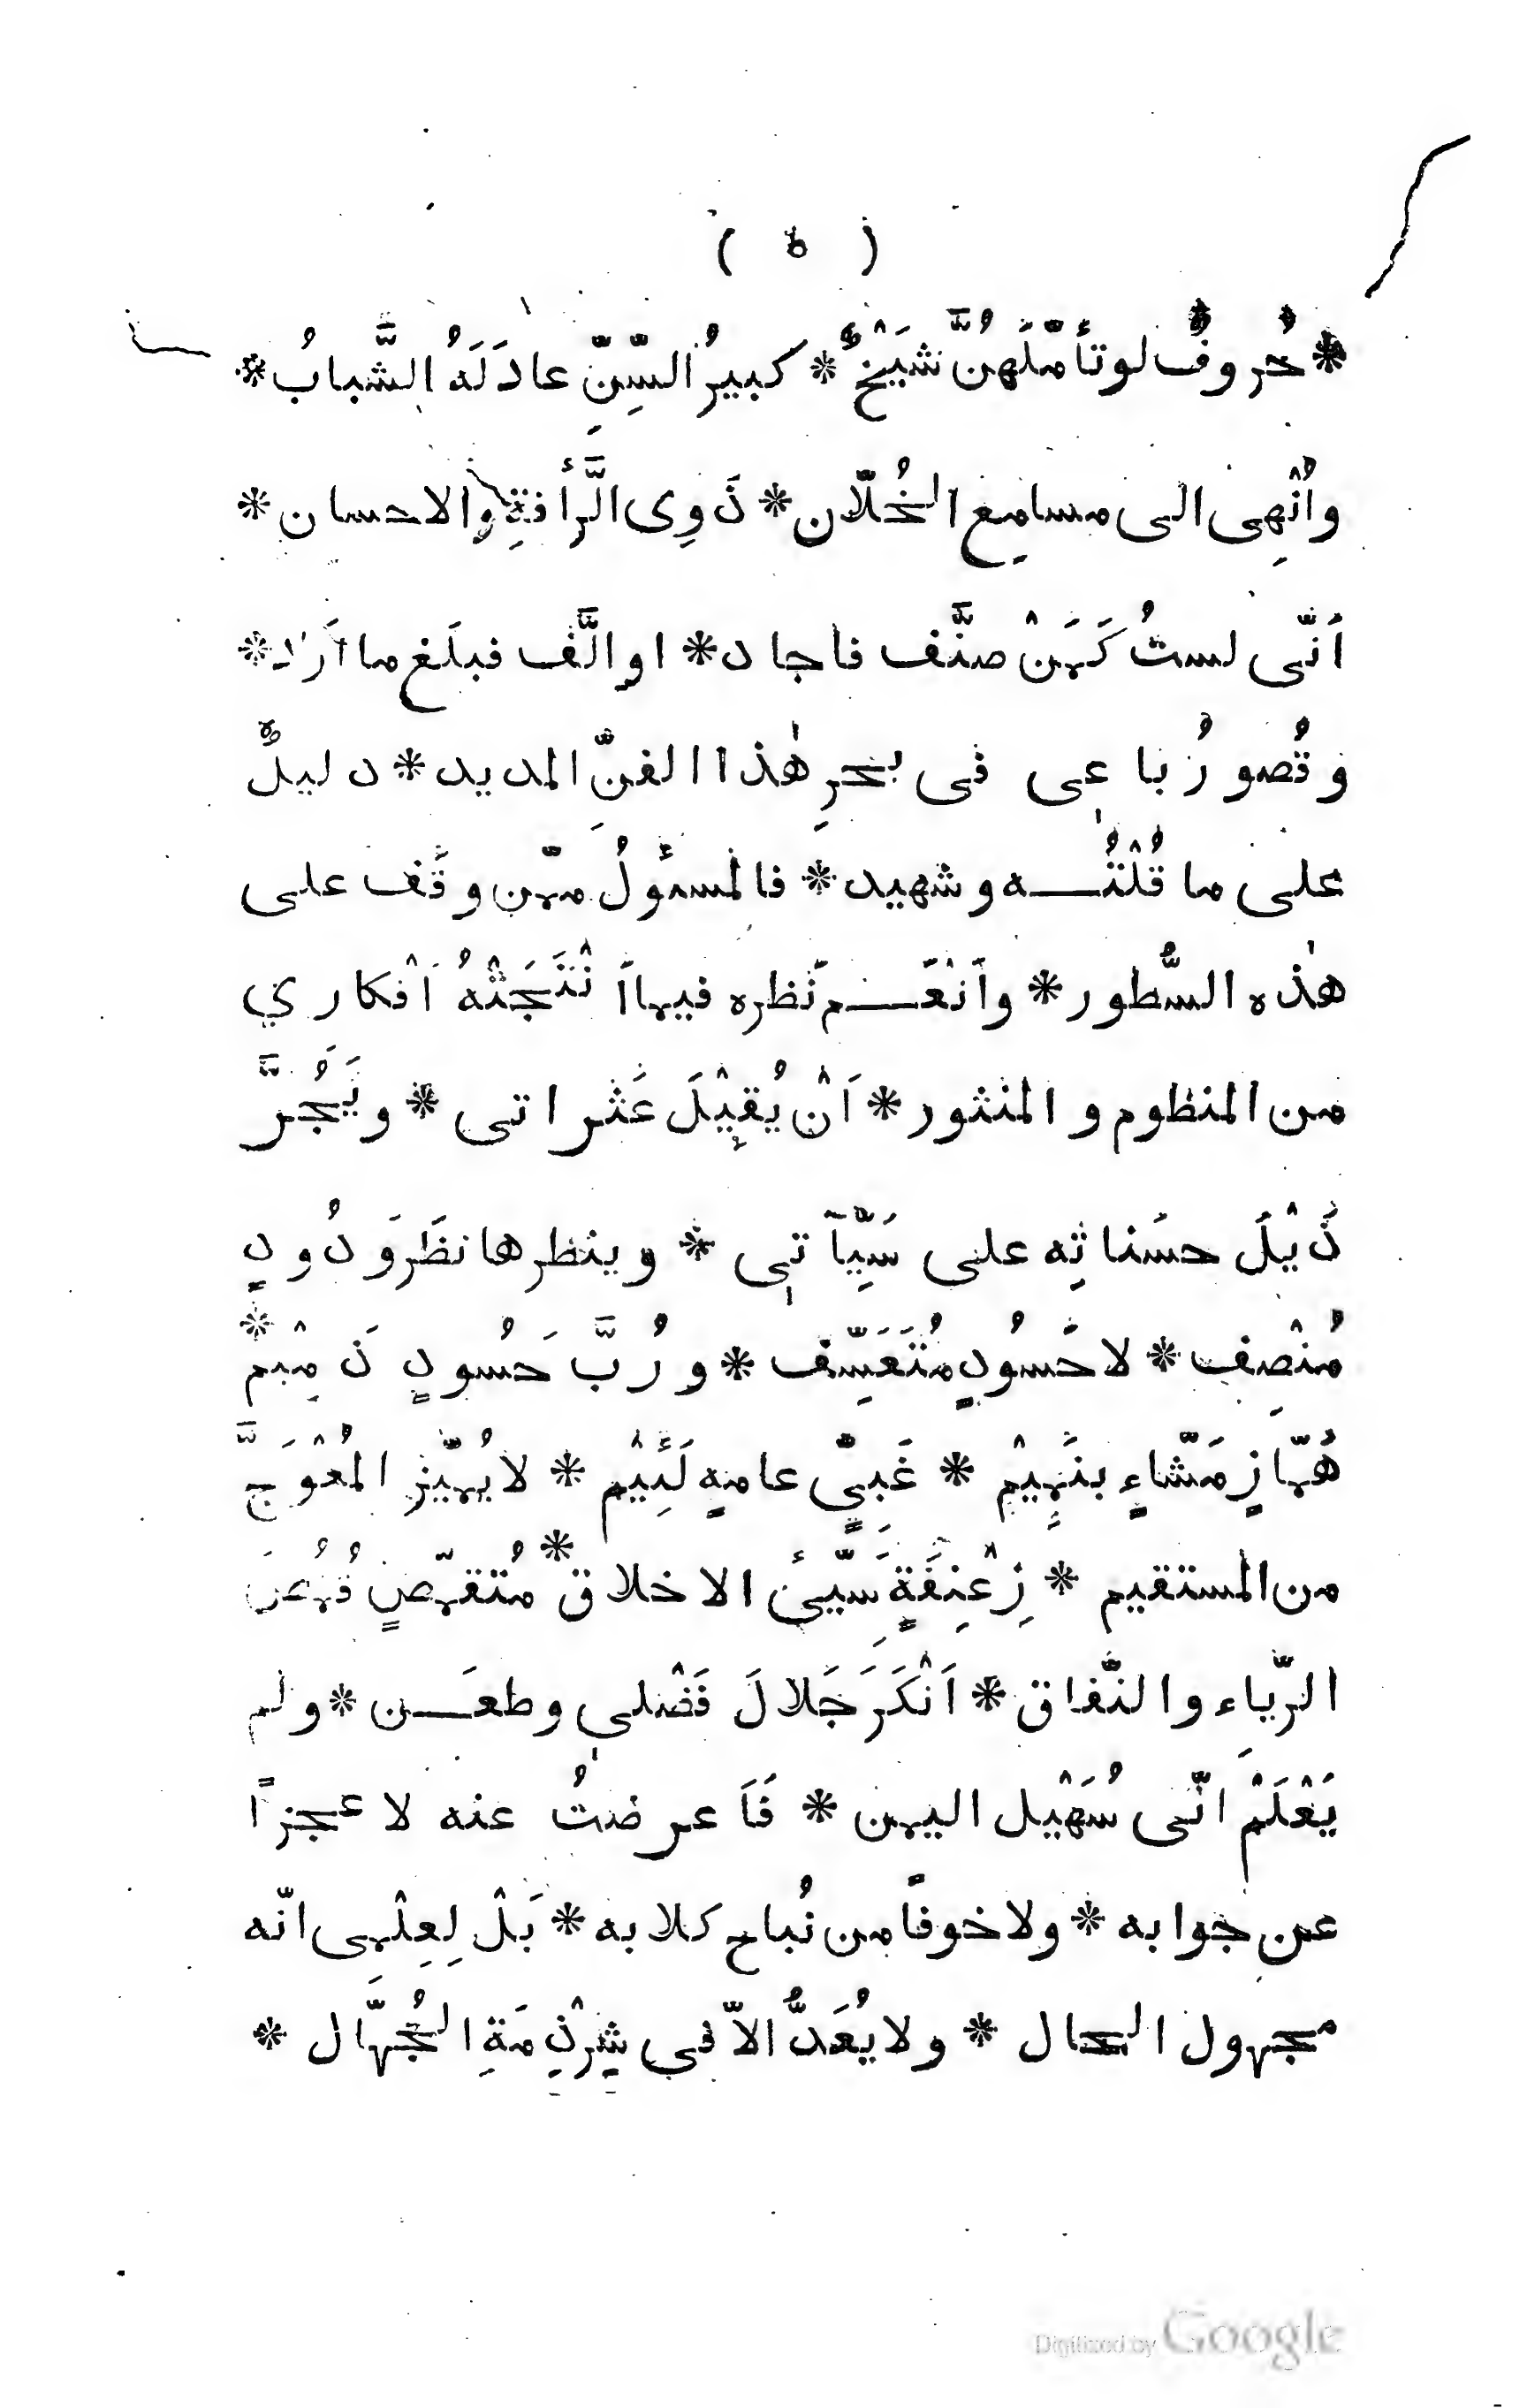 ( ٥ )
* حُروفٌ لوتأمّلَهُنَّ شَيْخٌ * كبيرُ السِّنِّ عادَلَهُ الشَّبابُ *
واُنْهِى الى مسامِع الخُلّان * ذَوِى الرَّأفةِ والاحسان *
اَنّى لستُ كَمَنْ صنَّف فاجاد * اوالَّف فبلَغ ما اَراد *
وقُصورُ باعِى فى بحرِ هٰذا الفنِّ المديد * دليلٌ
على ما قُلْتُـــه وشهيد * فالمسئولُ ممّن وقَف على
هٰذه السُّطور * واَنْعَـــم نَظره فيما اَنْتَجَتْهُ اَفْكاري
من المنظوم والمنثور * اَنْ يُقِيْلَ عَثراتى * ويَجُرَّ
ذَيْلَ حسَناتِه على سَيِّآتِى * وينظرها نظَرَ وَدُودٍ
مُنْصِف * لاحَسُودٍ مُتَعَسِّف * ورُبَّ حَسُودٍ ذَمِيْم *
هَمّازٍ مَشّاءٍ بنَمِيْم * غَبىٍّ عامهٍ لَئِيْم * لايُميّز المُعْوَجَّ
من المستقيم * زِعْنِفَةٍ سَيِّئ الاخلاق * مُتقمّصٍ قُمُصَ
الرّياء والنّفاق * اَنْكَرَ جَلالَ فَضْلى وطعَـــن * ولم
يَعْلَمْ انّى سُهَيْل اليمن * فَاَعرضتُ عنه لا عجزاً
عن جوابه * ولاخوفاً من نُباح كلابه * بَلْ لِعِلْمى انّه
مجهول الحال * ولايُعَدُّ الاّ فى شِرْذِمَةِ الجُهّال *
Digitized by Google